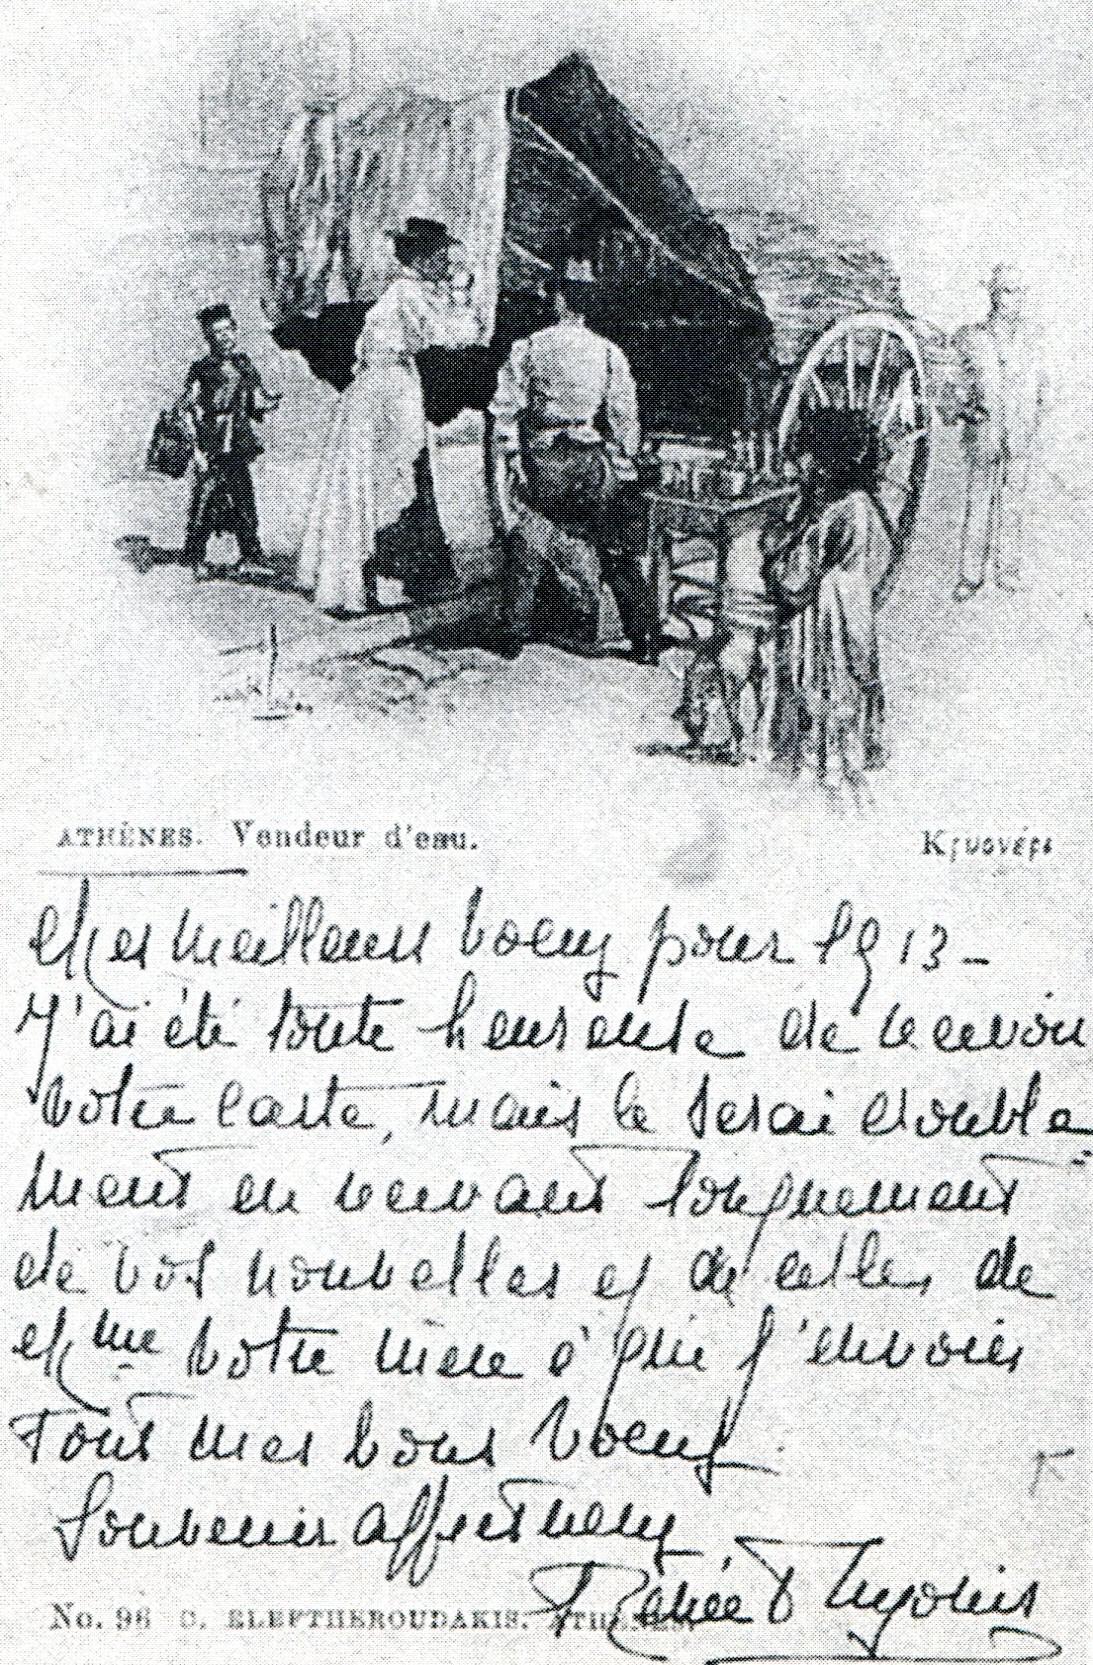 ATHÈNES. Vendeur d'eau.
Κρυονέρι
Mes meilleurs voeux pour 1913 -
J'ai été toute heureuse de recevoir
votre carte, mais le serai double
ment en recevant longuement
de vos nouvelles et de celles de
Mme votre mère à qui j'envoie
tous mes bons voeux.
Souvenir affectueux
Renée
No. 96 C. ELEFTHEROUDAKIS. ATHÈNES.